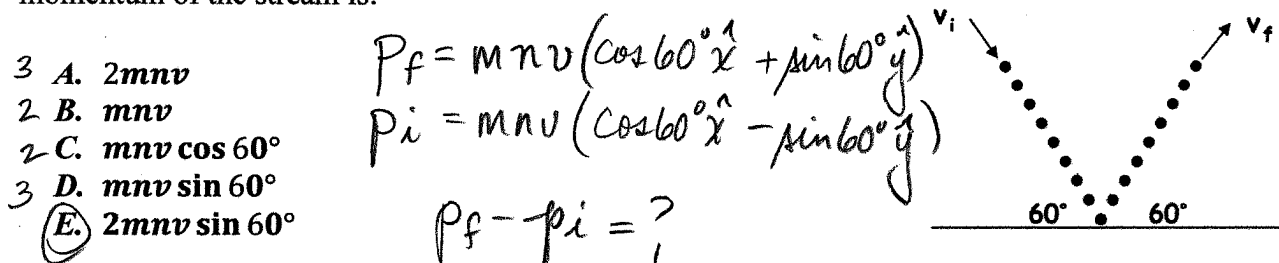 momentum of the stream is:
3 A. 2mnv
2 B. mnv
2 C. mnv cos 60°
3 D. mnv sin 60°
E. 2mnv sin 60°
Pf = mnv(cos60° x̂ + sin60° ŷ)
Pi = mnv(cos60° x̂ − sin60° ŷ)
Pf − Pi = ?
vi
vf
60°
60°